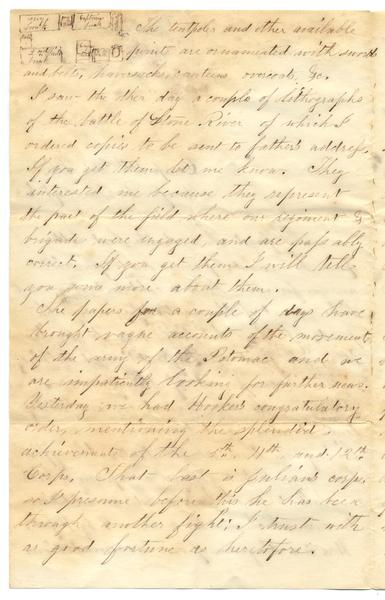 The tentpoles and other available
points are ornamented with sword
and belts, haversacks, canteens overcoat, &c.
I saw the other day a couple of lithographs
of the battle of Stone River of which I
ordered copies to be sent to father's address.
If you get them let me know. They
interested me because they represent
the part of the field where our regiment &
brigade were engaged, and are passably
correct. If you get them I will tell
you some more about them.
The papers for a couple of days have
brought vague accounts of the movement
of the army of the Potomac and we
are impatiently looking for further news.
Yesterday we had Hooker's congratulatory
order, mentioning the splendid
achievements of the 5th, 11th, and 12th
Corps. That last is Julian's corps.
so I presume before this he has been
through another fight; I trust with
as good fortune as heretofore.